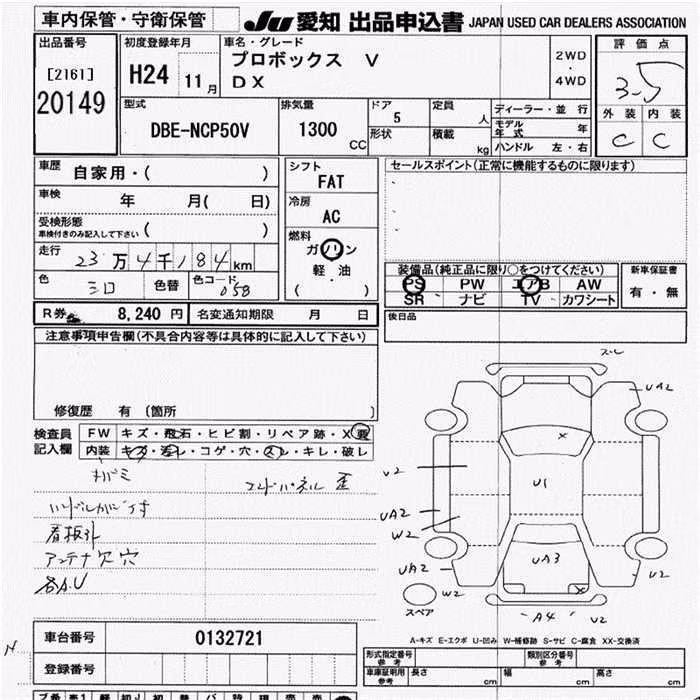 車内保管・守衛保管
JU 愛知 出品申込書 JAPAN USED CAR DEALERS ASSOCIATION
出品番号
[2161]
20149
初度登録年月
H24 11月
車名・グレード
プロボックス V
DX
2WD
・
4WD
評価点
3.5
外装 内装
C C
型式
DBE-NCP50V
排気量
1300
CC
ドア
5
形状
定員
人
積載
kg
ディーラー・並行
モデル年式 年
ハンドル 左・右
車歴
自家用・( )
車検
年 月( 日)
受検形態
車検付きのみ記入して下さい ( )
走行
23万4千184km
色
シロ
色替
色コード
058
シフト
FAT
冷房
AC
燃料
ガソリン
軽・油
( )
セールスポイント(正常に機能するものに限ります)
装備品(純正品に限り○をつけてください)
PS PW エアB AW
SR ナビ TV カワシート
新車保証書
有・無
後日品
R券 8,240円 名変通知期限 月 日
注意事項申告欄(不具合内容等は具体的に記入して下さい)
修復歴 有 〔箇所 〕
検査員
記入欄
FW キズ・飛石・ヒビ割・リペア跡・X要
内装 キズ・汚レ・コゲ・穴・スレ・キレ・破レ
コアパネル 歪
看板外
アンテナ欠穴
スレ
UA2
X
U2
U1
UA2
W2
UA2
UA3
X
W2
U2
A4
U2
スペア
A-キズ E-エクボ U-凹み W-補修跡 S-サビ C-腐食 XX-交換済
車台番号 0132721
登録番号
形式指定番号
参考
類別区分番号
参考
車庫証明用
参考
長さ cm
幅 cm
高さ cm